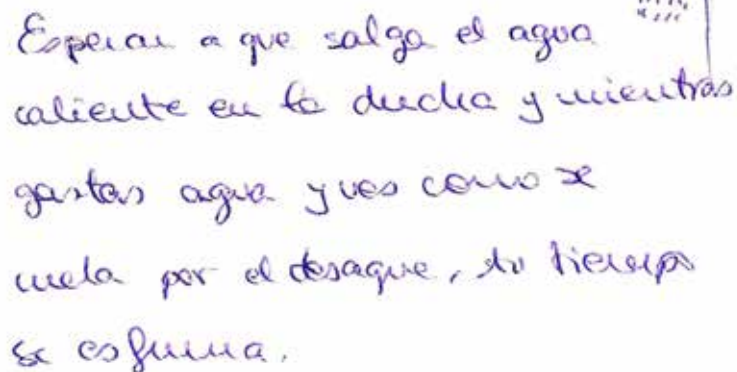 Esperar a que salga el agua
caliente en la ducha y mientras
gastas agua y ves como se
cuela por el desague, tu tiempo
se esfuma.